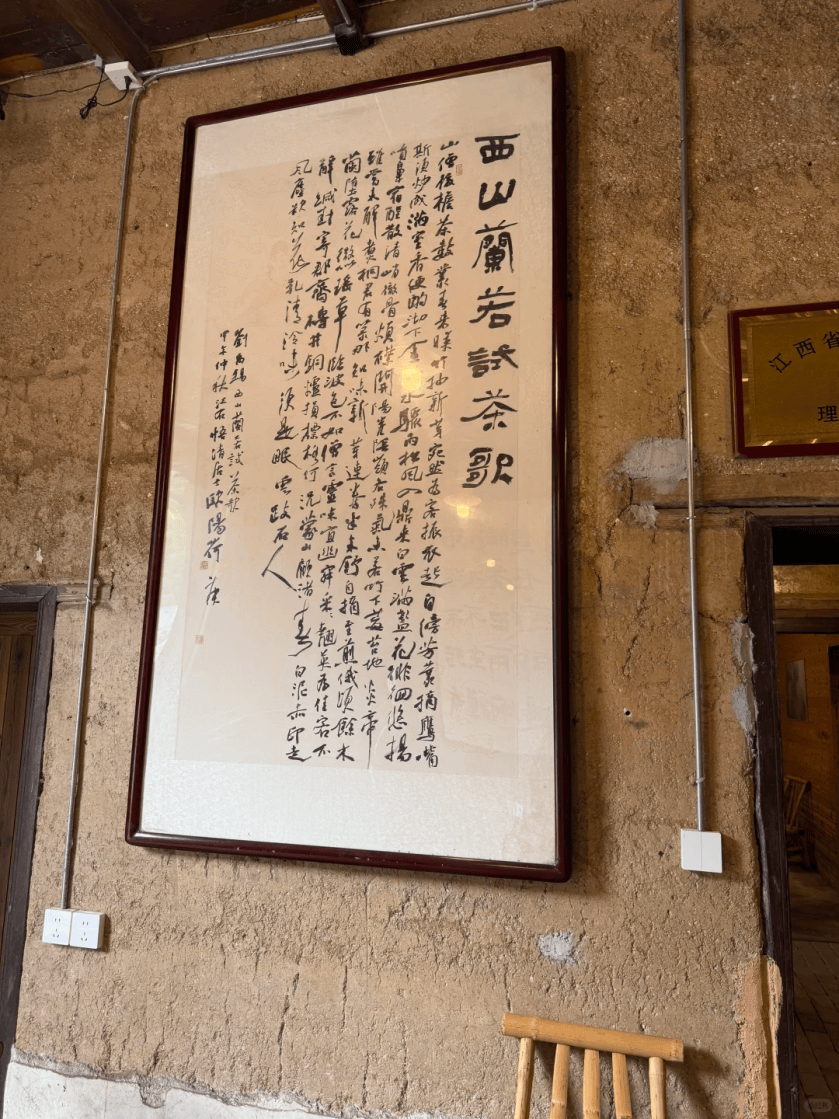 西山蘭若試茶歌
山僧後檐茶數叢春來映竹抽新茸宛然為客振衣起自傍芳叢摘鷹嘴
斯須炒成滿室香便酌沏下金沙水驟雨松風入鼎來白雲滿盞花徘徊悠揚
噴鼻宿酲散清峭徹骨煩襟開陽崖陰嶺各殊氣未若竹下莓苔地炎帝
雖嘗未解煮桐君有箓那知味新芽連拳半未舒自摘至煎俄頃餘木
蘭墜露花微似瑤草臨波色不如僧言靈味宜幽寂采采翹英為佳客不
辭緘封寄郡齋磚井銅爐損標格何況蒙山顧渚春白泥赤印走
風塵欲知花乳清泠味須是眠雲跂石人
劉禹錫西山蘭若試茶歌
甲午仲秋江右悟清居士歐陽荷庚
江西省
理